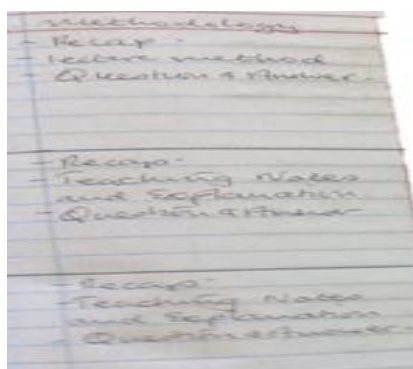 methodology
- Recap.
- lecture method
- Question & Answer.
- Recap.
- Teaching Notes
and Explanation
- Question & Answer
- Recap.
- Teaching Notes
and Explanation
- Question & Answer.